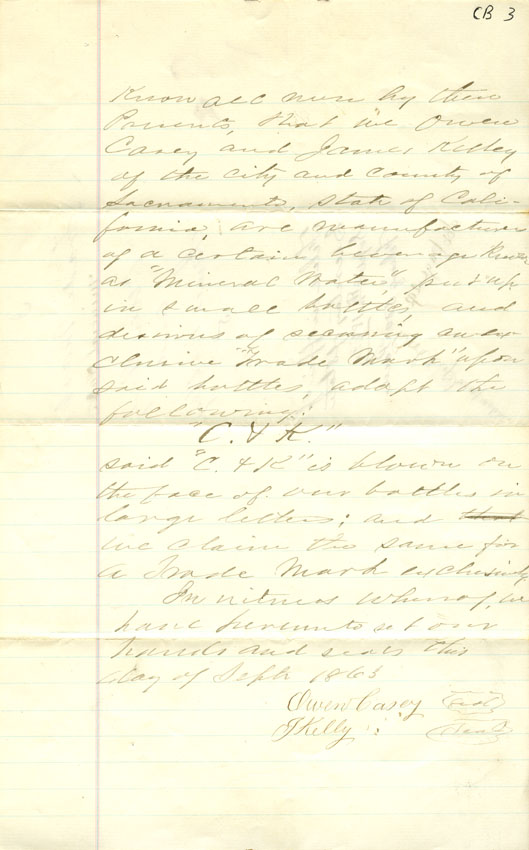 CB 3
Know all men by these
Presents, that we Owen
Casey and James Kelley
of the City and County of
Sacramento, State of Cali-
fornia, are manufacturers
of a certain beverage known
as "Mineral Water" put up
in small bottles, and
desirous of securing an ex
clusive "Trade Mark" upon
said bottles, adopt the
following:
"C. & K."
said "C. & K" is blown on
the face of our bottles in
large letters; and that
we claim the same for
a Trade Mark exclusively
In witness whereof, we
have hereunto set our
hands and seals this
day of Sept 1863
Owen Casey Seal
J Kelly Seal